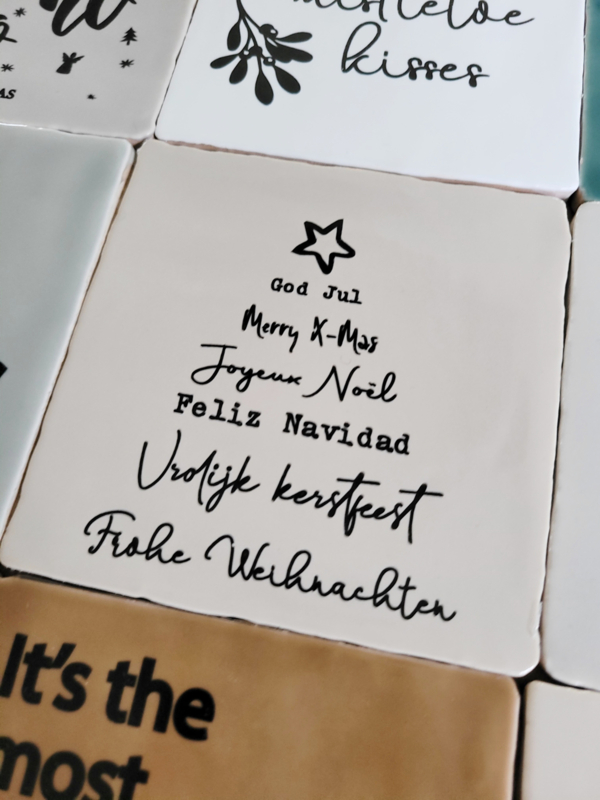 kisses
God Jul
Merry X-Mas
Joyeux Noël
Feliz Navidad
Vrolijk kerstfeest
Frohe Weihnachten
It's the
most